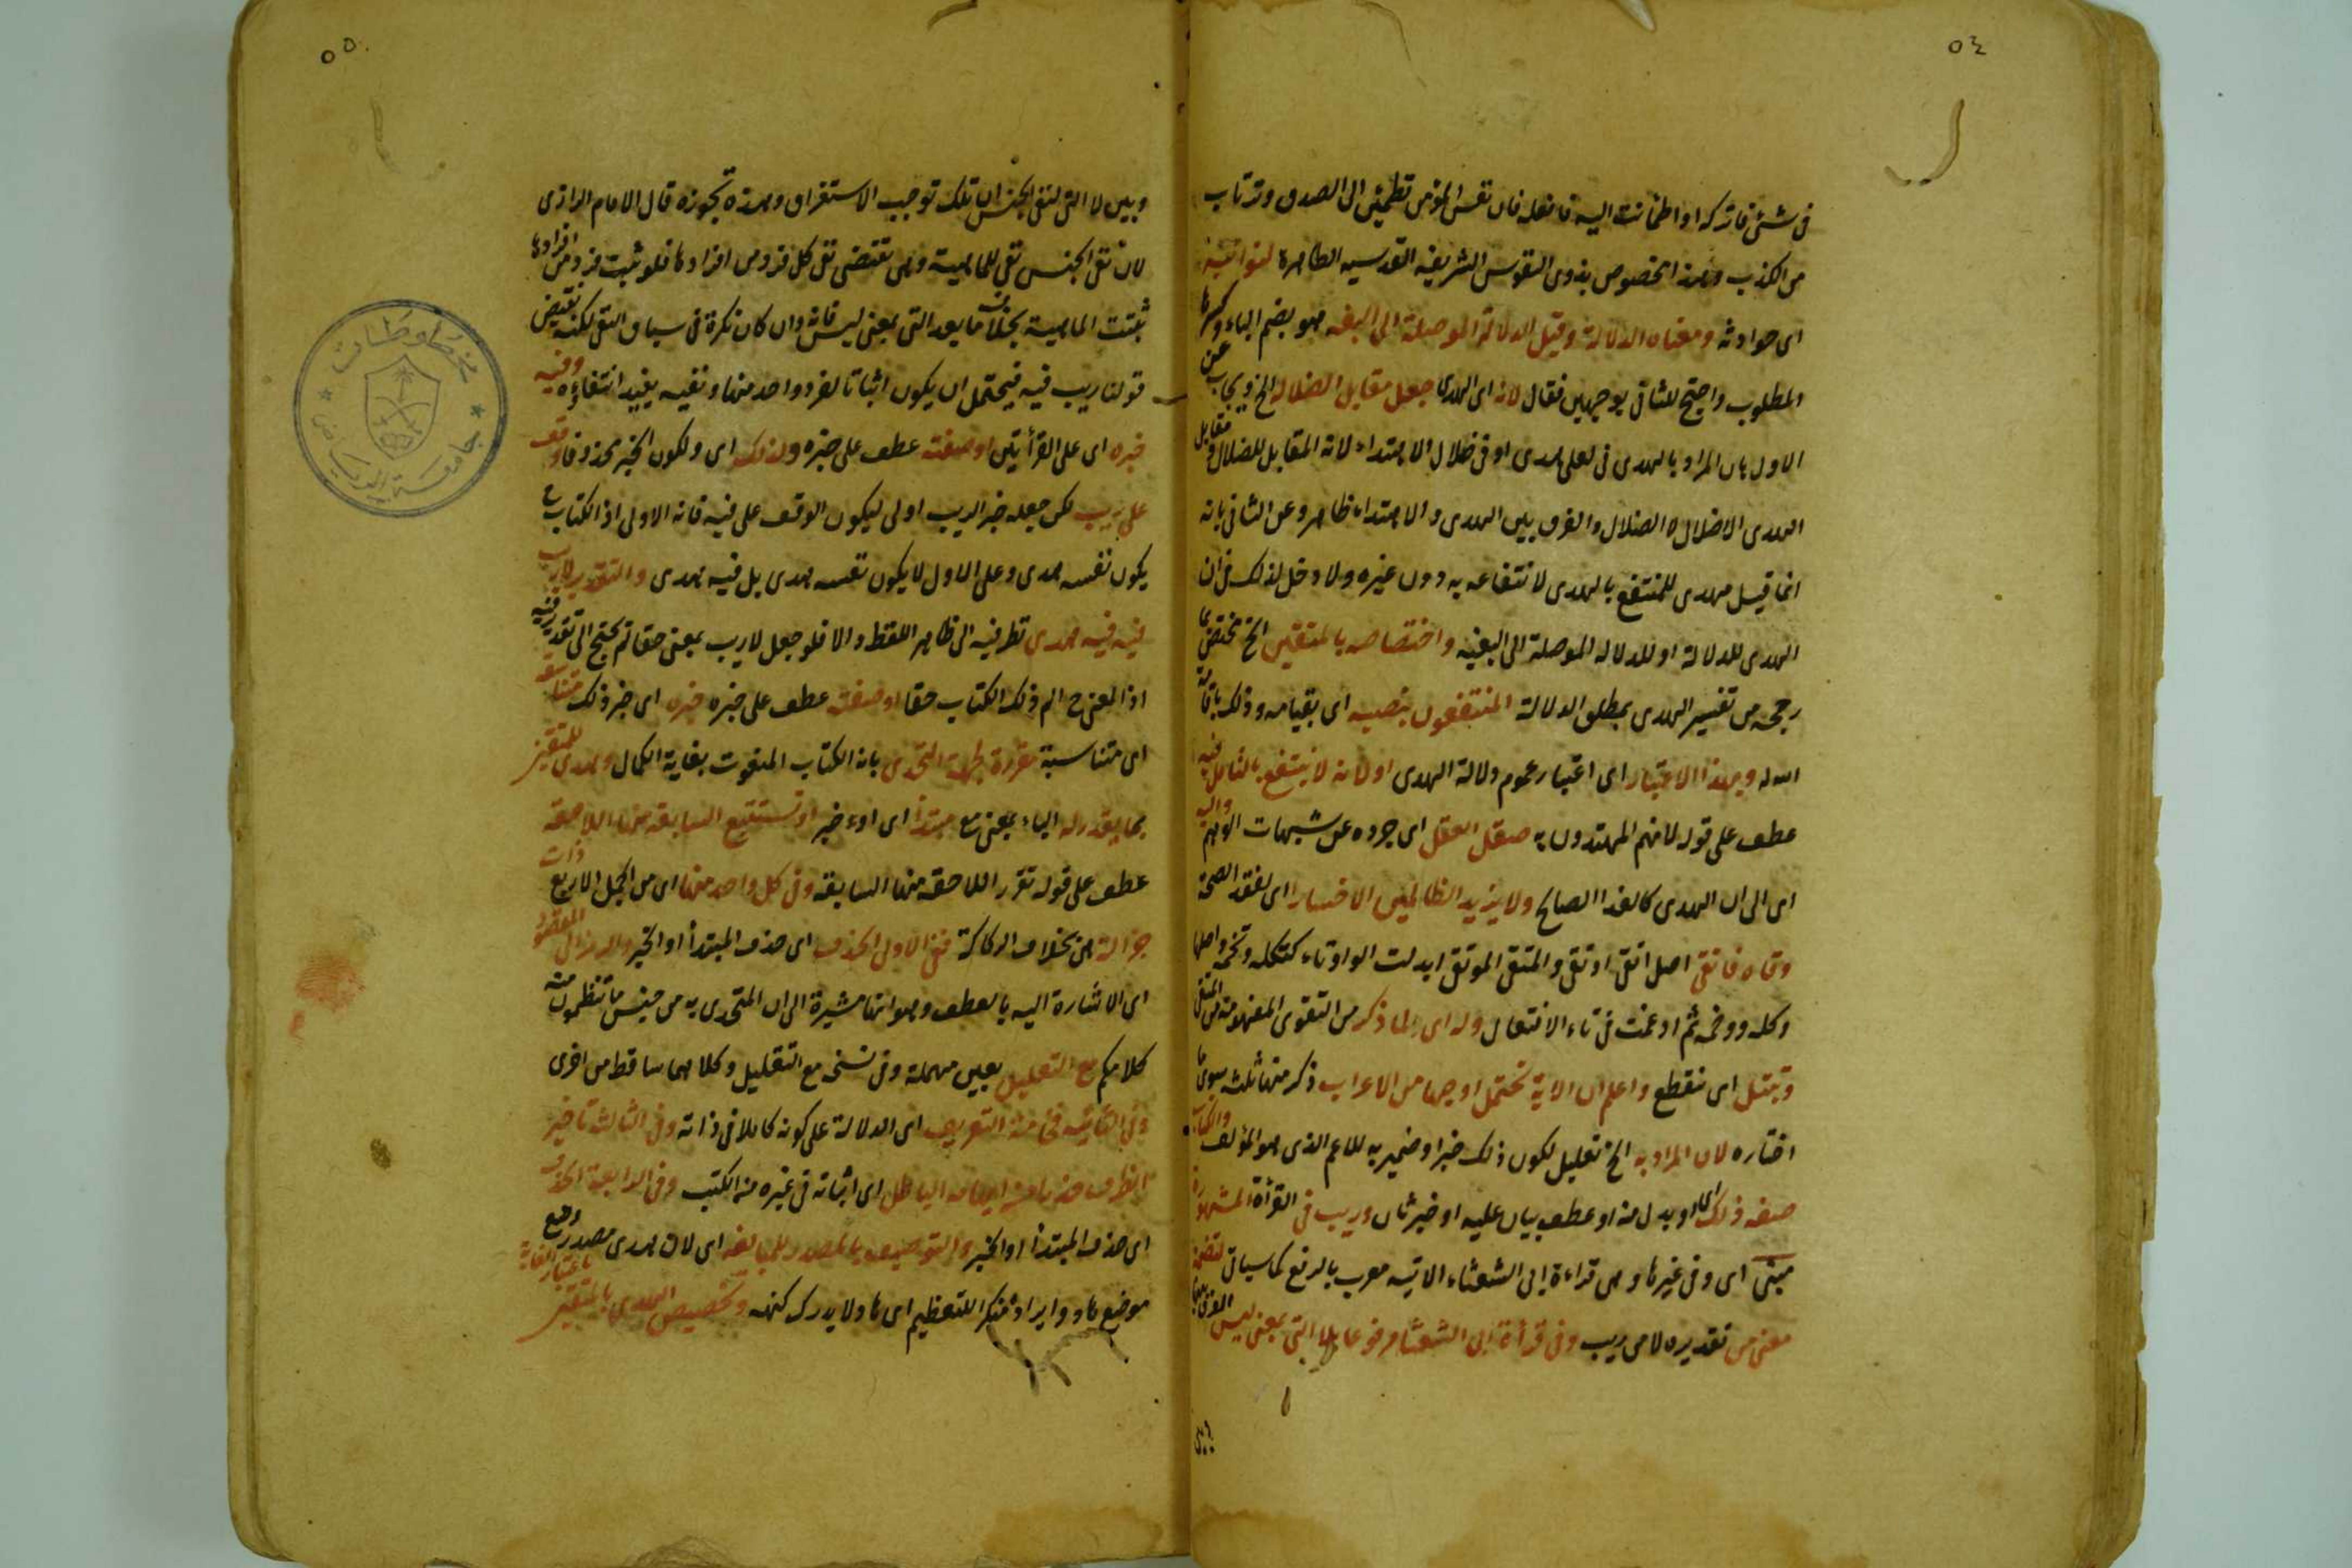 ٥٤
في شئ فاتركه او اطمانت اليه فافعله فان نفس المؤمن تطمئن الى الصدق وترتاب
من الكذب وهذا مخصوص بذوى النفوس الشريفه القدسيه الطاهرة لنوائبه
اى حوادثه ومعناه الدلالة وقيل الدلالة الموصلة الى البغيه هو بضم الباء وكسرها
المطلوب واحتج للثانى بوجهين فقال لانه اى الهدى جعل مقابل الضلاله الخ ويجاب عن
الاول بان المراد بالهدى فى لعلى هدى او فى ضلال الاهتداء لانه المقابل للضلال ومقابل
الهدى الاضلال لا الضلال والفرق بين الهدى والاهتداء ظاهر وعن الثانى بانه
انما قيل مهدى للمنتفع بالهدى لانتفاعه به دون غيره ولا دخل لذلك فى ان
الهدى للدلالة او للدلاله الموصلة الى البغيه واختصاصه بالمتقين الخ
رجحه من تفسير الهدى بمطلق الدلالة المنتفعون بنصبه اى بقيامه وذلك باقامة
الله له وبهذا الاعتبار اى اعتبار عموم دلالة الهدى او لانه لا ينتفع بالتامل فيه
عطف على قوله لانهم المهتدون به صقل العقل اى جرده عن شبهات الوهم واليه
اى الى ان الهدى كالغذا الصالح ولا يزيد الظالمين الا خسارا اى لفقد الصحة
وقاه فاتقى اصل اتقى اوتقى والمتقى الموتقى ابدلت الواو تاء كتكله وتخمه واصلها
وكله ووخمه ثم ادغمت فى تاء الافتعال وله اى لما ذكر من التقوى المفهومة من المتقى
وتبتل اى نقطع واعلم ان الاية تحتمل اوجها من الاعراب ذكر منها ثلثة سوى ما
اختاره لان المراد به الخ تعليل لكون ذلك خبرا وضمير به للاعم الذى هو المؤلف والكتاب
صفه ذلك اى او بدل منه او عطف بيان عليه او خبر ثان وريب فى القرأة المشهورة
مبنى اى وفى غيرها وهى قراءة ابى الشعثاء الاتيه معرب بالرفع كما سياتى لتضمنه
معنى من تقديره لا من ريب وفى قرأة ابى الشعثا مرفوع بلا التى بمعنى ليس الفرق بينها
وبين
٥٥
وبين لا التى لنفى الجنس ان تلك توجب الاستغراق وهذه تجوزه قال الامام الرازى
لان نفى الجنس نفى للماهية وهى تقتضى نفى كل فرد من افرادها فلو ثبت فرد من افرادها
ثبتت الماهية بخلاف ما بعد التى بمعنى ليس فانه وان كان نكرة فى سياق النفى لكنه نقيض
قولنا ريب فيه فيحتمل ان يكون اثباتا لفرد واحد منها ونفيه يفيد انتفاءه وفيه
خبره اى على القرأتين او صفته عطف على خبره ولذلك اى ولكون الخبر محذوفا وقف
على ريب لكن جعله خبر الريب اولى ليكون الوقف على فيه فانه الاولى اذ الكتاب ح
يكون نفسه هدى وعلى الاول لا يكون نفسه هدى بل فيه هدى والتقدير لا ريب
فيه فيه هدى نظر فيه الى ظاهر اللفظ والا فلو جعل لا ريب بمعنى حقا لم يحتج الى تقدير فيه
اذ المعنى ح الم ذلك الكتاب حقا او صفته عطف على خبره خبره اى خبر ذلك متناسقه
اى متناسبة مقررة لجهة التحدى بانه الكتاب المنعوت بغاية الكمال وهدى للمتقين
بما يقدر له الباء بمعنى مع مبتدأ اى او خبر او تستتبع السابقه منها اللاحقة
عطف على قوله تقرر اللاحقه منها السابقه وفى كل واحد منها اى من الجمل الاربع ذات
جزالة هى بخلاف الركاكة ففى الاولى الحذف اى حذف المبتدأ او الخبر والرمز الى المقصود
اى الاشارة اليه بالعطف وهو انها مشيرة الى ان المتحدى به من جنس ما تنظمون منه
كلامكم مع التعليل بعين مهملة وفى نسخه مع التقليل وكلاهما ساقط من اخرى
وفى الثانيه فخامة التعريف اى الدلالة على كونه كاملا فى ذاته وفى الثالثة تاخير
الظرف حذرا من ايهام الباطل اى اثباته فى غيره من الكتب وفى الرابعة الحذف
اى حذف المبتدا او الخبر والتوصيف بالمصدر للمبالغه اى لان هدى مصدر وضع
موضع هاد وايراده منكرا للتعظيم اى هاد لا يدرك كنهه وتخصيص الهدى بالمتقين باعتبار الغاية
مخطوطات
جامعة الرياض